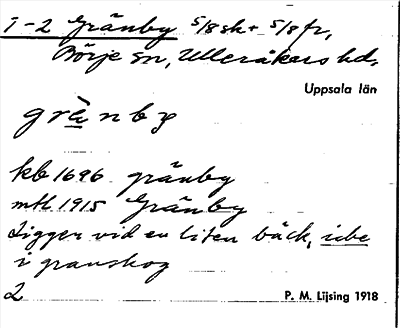 1-2 Gränby 5/8 sk + 5/8 fr,
Börje sn, Ulleråkers hd.
Uppsala län
grä̀nby
kb 1696 gränby
mtl 1915 Gränby
Ligger vid en liten bäck, icke
i granskog
2
P. M. Lijsing 1918